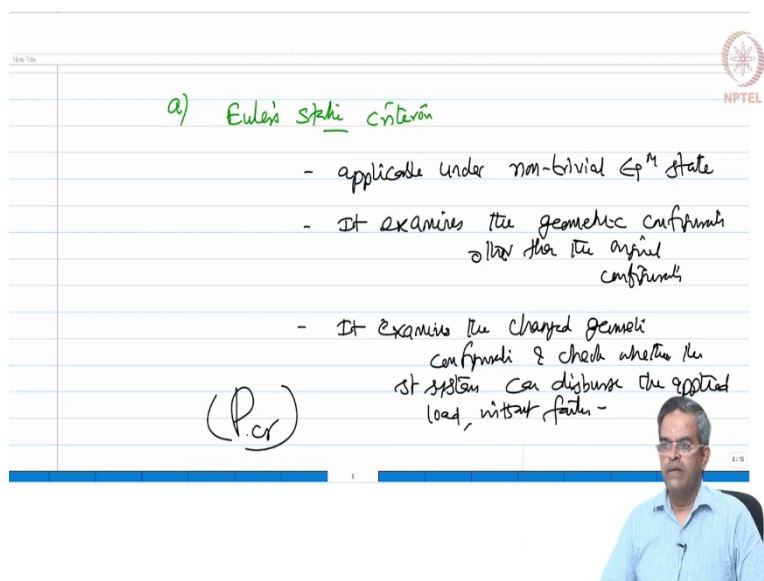 Note Title
NPTEL
a) Euler's static criterion
- applicable under non-trivial Eqᴹ state
- It examines the geometric configuration
other than the original
configuration
- It examines the changed geometric
configuration & check whether the
st system can disburse the applied
load, without failure -
(Pcr)
8
8/16